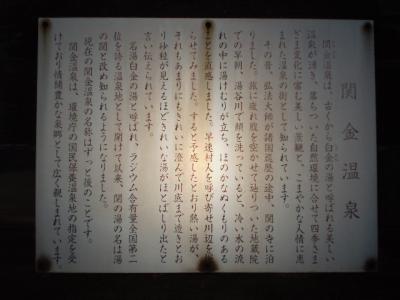 関金温泉
関金温泉は、古くから白金の湯と呼ばれる美しい
温泉が湧き、落ちついた自然環境に合せて四季さま
ざま変化に富む美しい景観と、こまやかな人情に恵
まれた温泉の街として知られています。
その昔、弘法大師が諸国巡歴の途中、関の寺に泊
りました。旅に疲れ腹を空かせて辿りついた地蔵院
での早朝、湯谷川で顔を洗っていると、冷い水の流
れの中に湯けむりが立ち、ほのかなぬくもりのある
ことを直感しました。早速村人を呼び寄せ川辺を掘
らせてみました。すると予感したとおり熱い湯が、
それもあまりにもきれいに澄んで川底まで透きとお
り砂粒が見えるほどきれいな湯がほとばしり出たと
言い伝えられています。
名湯白金の湯と呼ばれ、ラジウム含有量全国第二
位を誇る温泉地として開けて以来、関の湯の名は湯
の関と改め知られるようになりました。
現在の関金温泉の名称はずっと後のことです。
関金温泉は、環境庁の国民保養温泉地の指定を受
けており情緒豊かな泉郷として広く親しまれています。